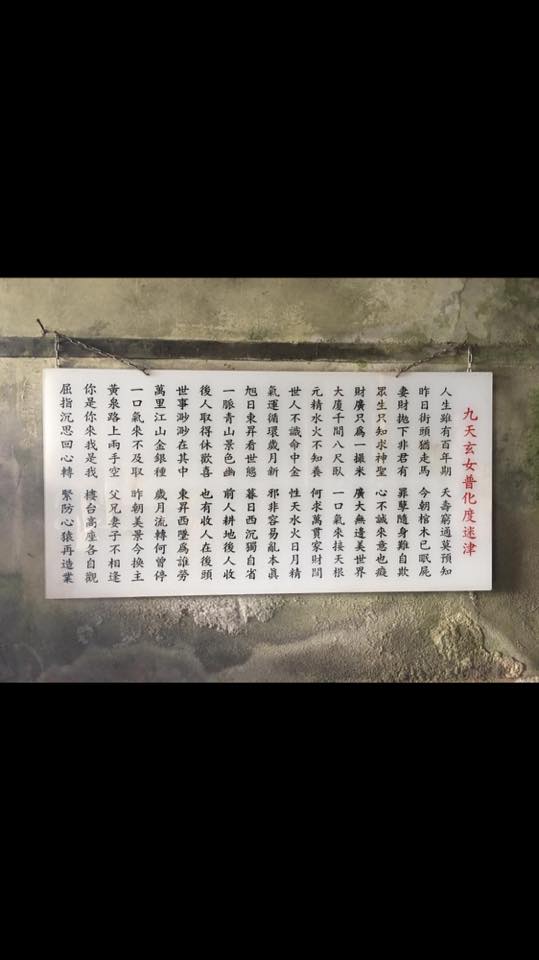 九天玄女普化度迷津
人生雖有百年期 夭壽窮通莫預知
昨日街頭猶走馬 今朝棺木已眠屍
妻財拋下非君有 罪孽隨身難自欺
眾生只知求神聖 心不誠來意也癡
財廣只為一撮米 廣大無邊美世界
大廈千間八尺臥 一口氣來接天根
元精水火不知養 何求萬貫家財問
世人不識命中金 性天水火日月精
氣運循環歲月新 邪非容易亂本真
旭日東昇看世態 暮日西沉獨自省
一脈青山景色幽 前人耕地後人收
後人取得休歡喜 也有收人在後頭
世事渺渺在其中 東昇西墜為誰勞
萬里江山金銀種 歲月流轉何曾停
一口氣來不及取 昨朝美景今換主
黃泉路上兩手空 父兄妻子不相逢
你是你來我是我 樓台高座各自觀
屈指沉思回心轉 緊防心猿再造業